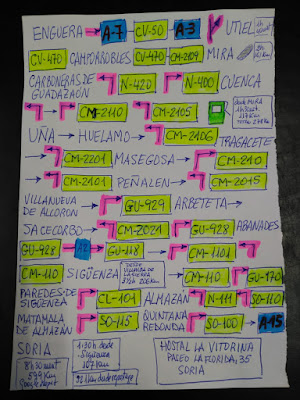 ENGUERA A-7 CV-50 A-3 UTIEL
CV-470 CAMPORROBLES CV-470 CM-2109 MIRA
CARBONERAS DE GUADAZAÓN N-420 N-400 CUENCA
CM-2110 CM-2105
UÑA → HUELAMO → CM-2106 TRAGACETE
→ CM-2201 MASEGOSA → CM-210
→ CM-2101 PEÑALEN → CM-2015
VILLANUEVA DE ALLORON → GU-929 ARBETETA →
JACECORBO → CM-2021 GU-928 ABANADES
GU-928 → → GU-118 → CM-1101
CM-110 SIGÜENZA → CM-110 GU-170
PAREDES DE SIGÜENZA CL-101 ALMAZÁN N-111 SO-110
MATAMALA DE ALMAZÁN SO-115 QUINTANA REDONDA SO-100 → A-15
SORIA
8h30 mont
599 Km
Google Maps
1:30h desde
Sigüenza
107 Km
HOSTAL LA VITORINA
PASEO LA FLORIDA, 35
SORIA